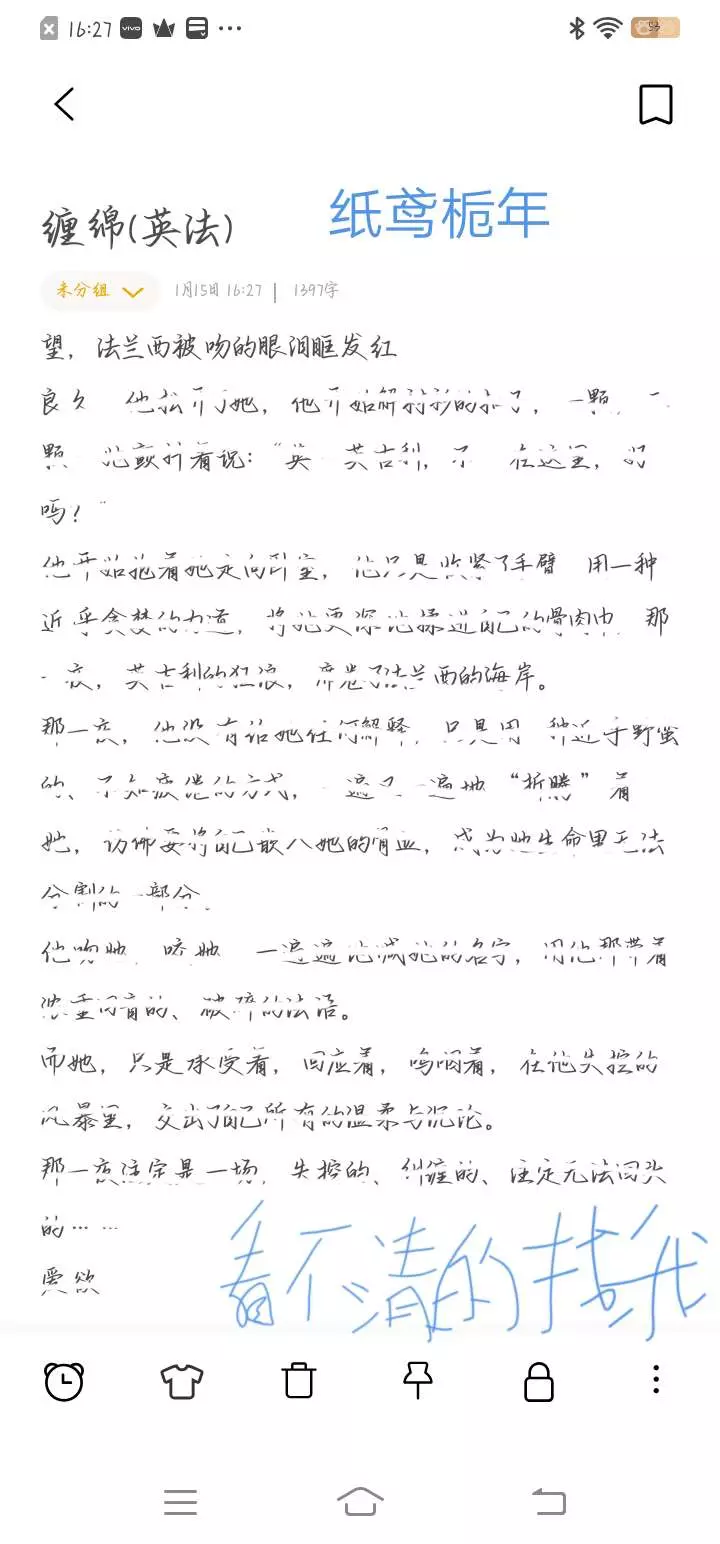 16:27 vivo
纸鸢栀年
缠绵(英法)
未分组 1月15日 16:27 | 1397字
望，法兰西被吻的眼泪眶发红
良久 他松开了她，他开始解衬衫的扣子，一颗，一
颗 她颤抖着说：“英 英吉利，不 在这里，好
吗？”
他开始抱着她走向卧室，他只是收紧了手臂 用一种
近乎贪婪的力道，将她更深地揉进自己的骨肉中 那
一夜，英吉利的狂浪，席卷了法兰西的海岸。
那一夜，他没有给她任何解释，只是用一种近乎野蛮
的、不知疲倦的方式，一遍又一遍地“折腾”着
她，仿佛要将自己嵌入她的骨血，成为她生命里无法
分割的一部分。
他吻她 咬她 一遍遍地喊她的名字，用他那带着
浓重口音的、破碎的法语。
而她，只是承受着，回应着，呜咽着，在他失控的
风暴里，交出了自己所有的温柔与沉沦。
那一夜注定是一场，失控的、纠缠的、注定无法回头
的……
爱欲
看不清的找我